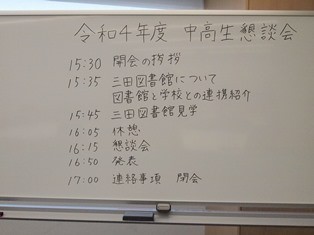 令和4年度 中高生懇談会
15:30 開会の挨拶
15:35 三田図書館について
図書館と学校との連携紹介
15:45 三田図書館見学
16:05 休憩
16:15 懇談会
16:50 発表
17:00 連絡事項 閉会